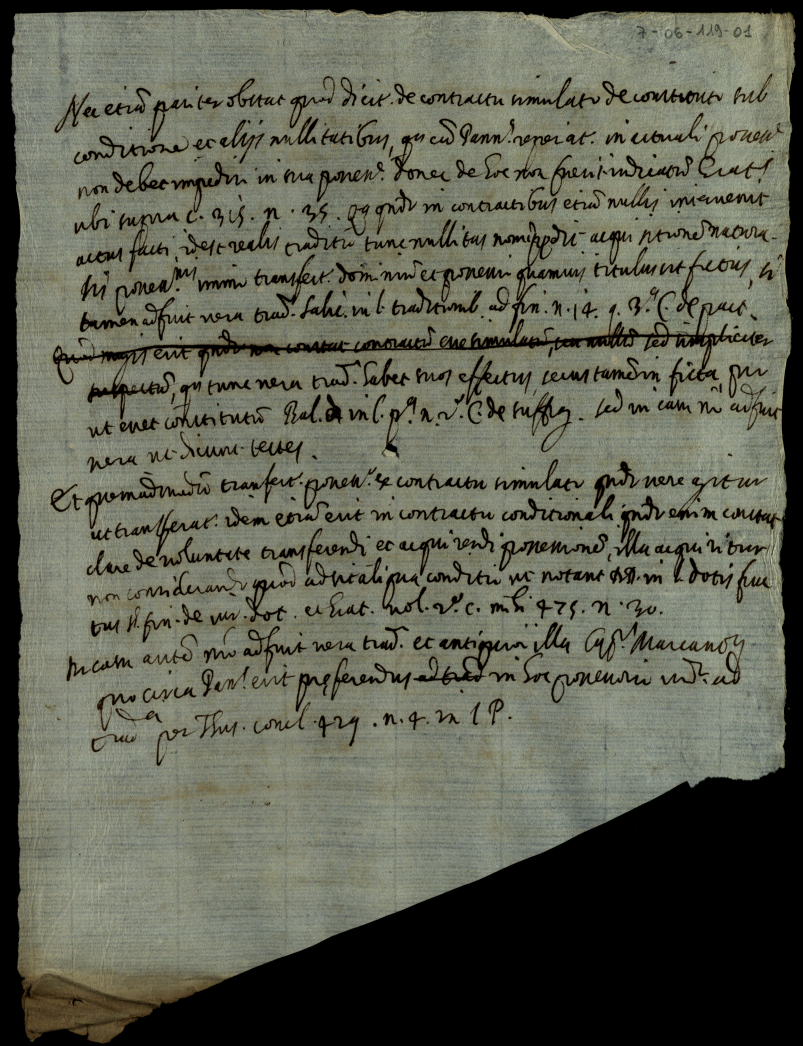 7-06-119-01
Nec etiã pariter obstat quod dicit. de contractu simulato de constituto sub
conditione et alijs nullitatibus, qa cũ Pann.s reperiat. in actuali possess.e
non debet impediri in sua possess.e donec de hoc non fuerit iudicatũ
ubi supra c. 315. n. 35. qa qndo in contractibus etiã nullis interuenit
actus facti, idest realis traditio tunc nullitas non impedit acquisitionẽ natura-
lis possess.nis immo transfert. dominiũ et possess. quamuis titulus sit fictus, si
tamen adfuit vera trad. Salic. in l. traditionib. ad fin. n. 14. q. 3.a C. de pact.
Quod magis erit qndo non constat contractũ esse simulatũ, seu nullũ sed simpliciter
suspectũ, qa tunc vera trad. habet suos effectus secus tamẽ in ficta, pur
ut esset constitutũ Bal. in l. p.a n. 2.o C. de suffrag. sed in casu nro adfuit
vera ut dicunt testes.
Et quemadmodũ transfert. possess.o ex contractu simulato qndo vere agitur
ut transferat. idem etiã erit in contractu conditionali qndo enim constat
clare de voluntate transferendi et acquirendi possessionẽ, illa acquiritur
non considerando quod adsit aliqua conditio ut notant DD. in l. dotis fruc
tus §. fin. de iur. dot. et vol. 2.o c. mihi 475. n. 30.
In casu autẽ nro adfuit vera trad. et antiquior illa Marcanog
quo circa Pan.s erit preferendus ad trad in hoc possessorio ad
trad.a per Thus. concl. 429. n. 4. in l P.